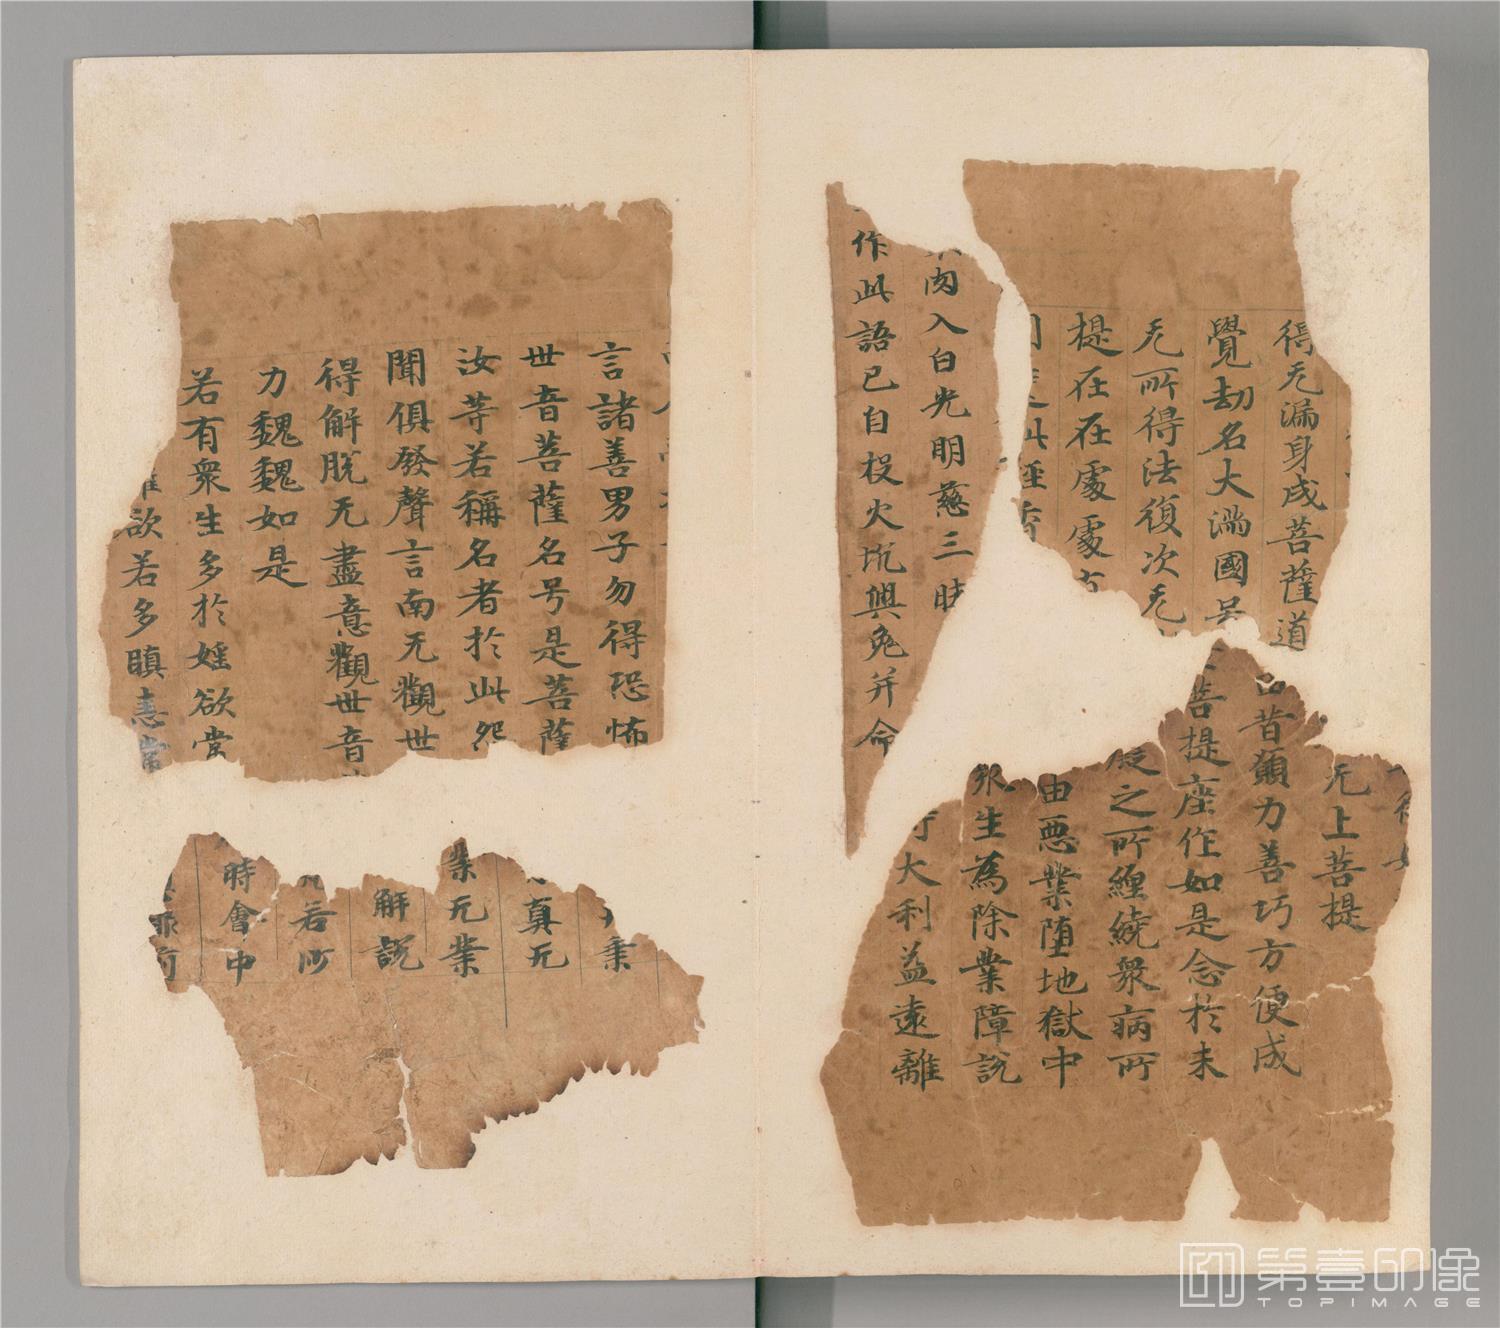 得无漏身成菩薩道
覺劫名大滿國
无所得法復次无
提在在處處
此經
肉入白光明慈三昧
作此語已自投火坑興兔并命
得
无上菩提
昔願力善巧方便成
菩提座作如是念於未
之所纏繞衆病所
由惡業堕地獄中
衆生為除業障說
大利益遠離
言諸善男子勿得恐怖
世音菩薩名号是菩薩
汝等若稱名者於此怨
聞俱發聲言南无觀世
得解脫无盡意觀世音
力巍巍如是
若有衆生多於婬欲常
欲若多瞋恚常
乗
真无
業无業
解說
若所
時會中
第壹印像
TOPIMAGE